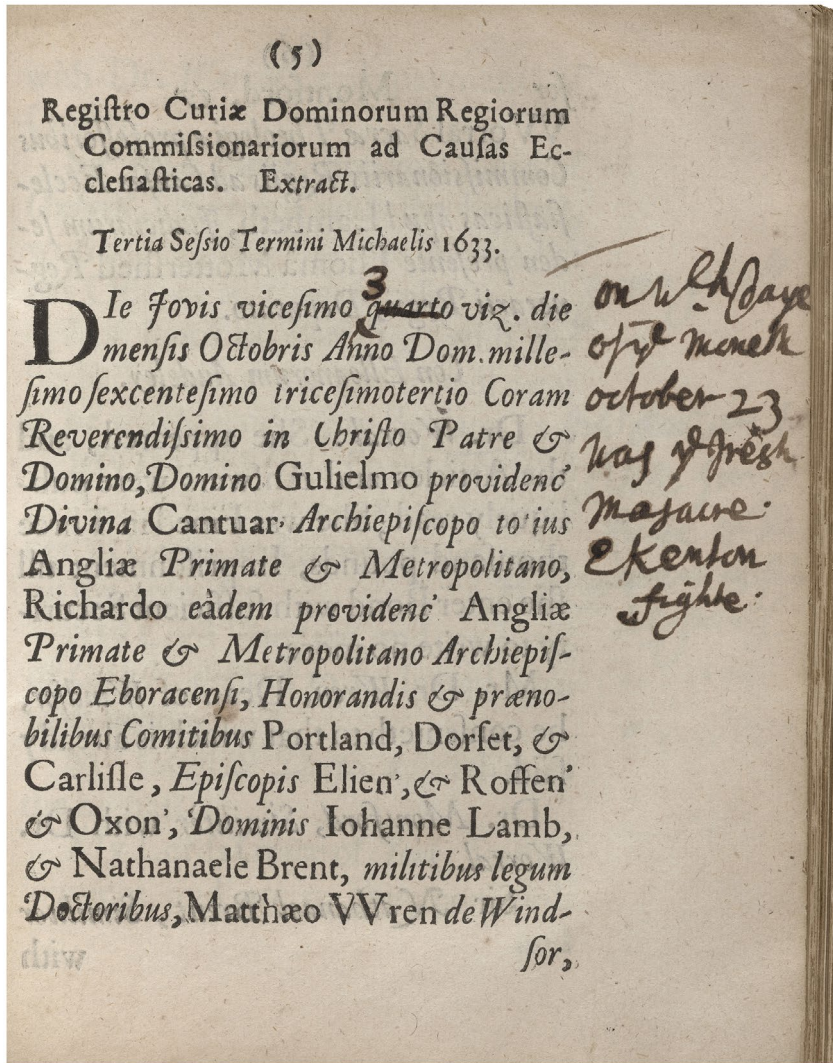 (5)
Regiſtro Curiæ Dominorum Regiorum
Commiſsionariorum ad Cauſas Ec-
cleſiaſticas. Extract.
Tertia Seſsio Termini Michaelis 1633.
DIe Jovis viceſimo quarto viz. die
3
menſis Octobris Anno Dom. mille-
ſimo ſexcenteſimo triceſimotertio Coram
Reverendiſsimo in Chriſto Patre &
Domino, Domino Gulielmo providenc'
Divina Cantuar. Archiepiſcopo to'ius
Angliæ Primate & Metropolitano,
Richardo eàdem providenc' Angliæ
Primate & Metropolitano Archiepiſ-
copo Eboracenſi, Honorandis & præno-
bilibus Comitibus Portland, Dorſet, &
Carliſle, Epiſcopis Elien', & Roffen'
& Oxon', Dominis Iohanne Lamb,
& Nathanaele Brent, militibus legum
Doctoribus, Matthæo VVren de Wind-
ſor,
on wch daye
of yͤ moneth
october 23
was yͤ Iresh
Masacre.
& Kenton
fighte.